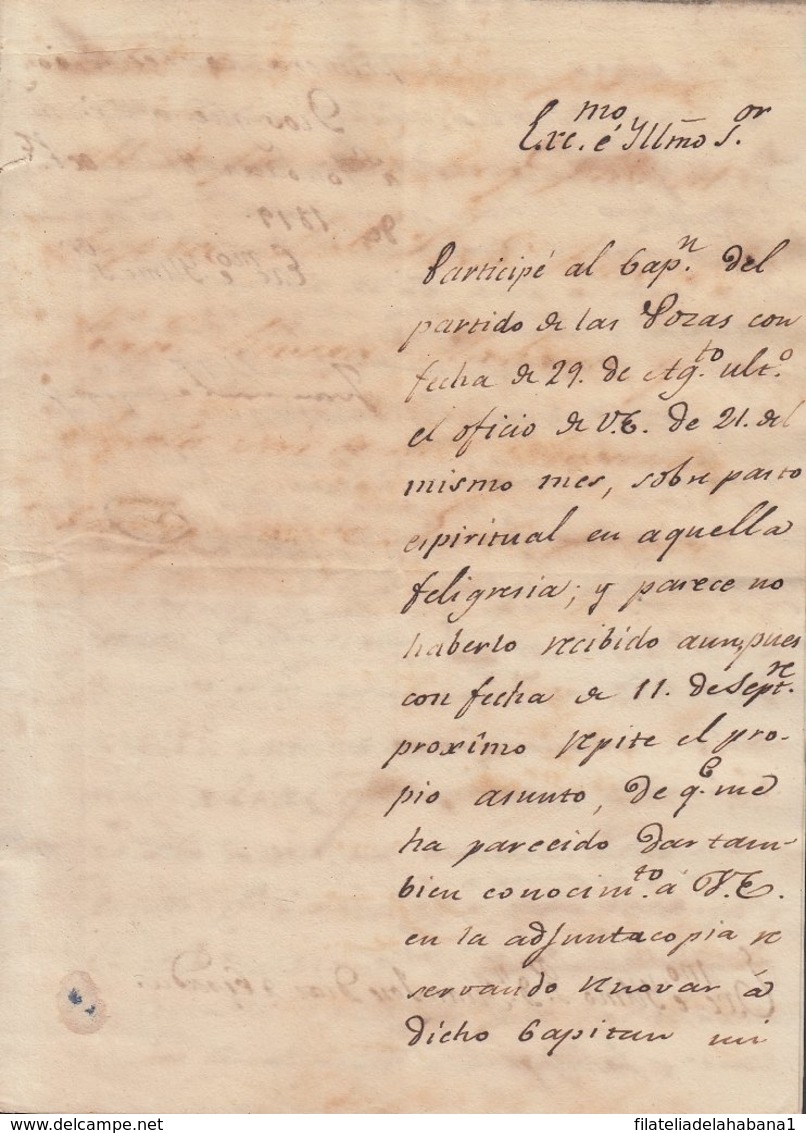 Exc.mo é Yllmo S.or
Participé al Cap.n del
partido de las Pozas con
fecha de 29. de Ag.to ult.o
el oficio de V.E. de 21. del
mismo mes, sobre pasto
espiritual en aquella
feligresia; y parece no
haberlo recibido aun, pues
con fecha de 11. de Sept.re
proximo repite el pro-
pio asunto, de q.e me
ha parecido dar tam-
bien conocim.to á V.E.
en la adjunta copia re
servando renovar á
dicho Capitan mi
filateliadelahabana1